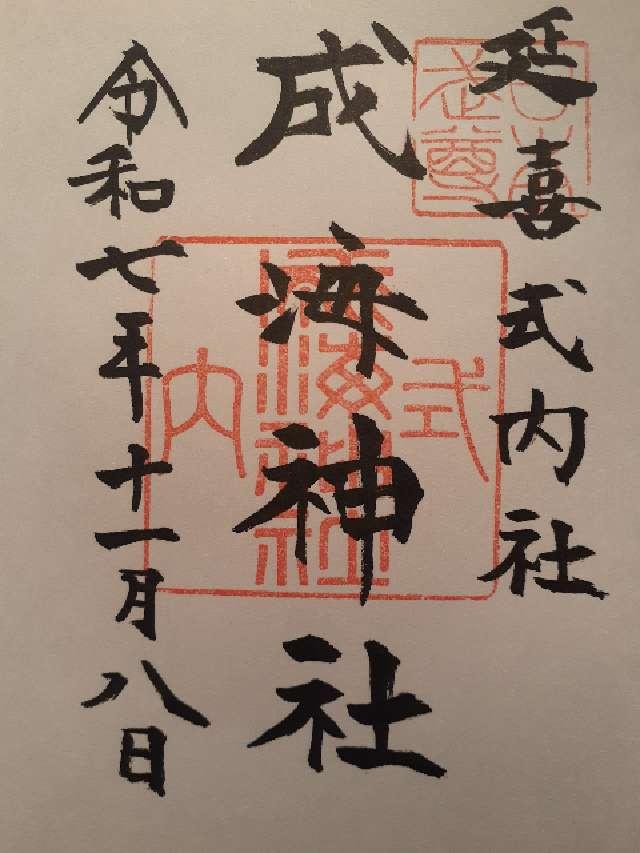 延喜式内社
成海神社
令和七年十一月八日
式
内